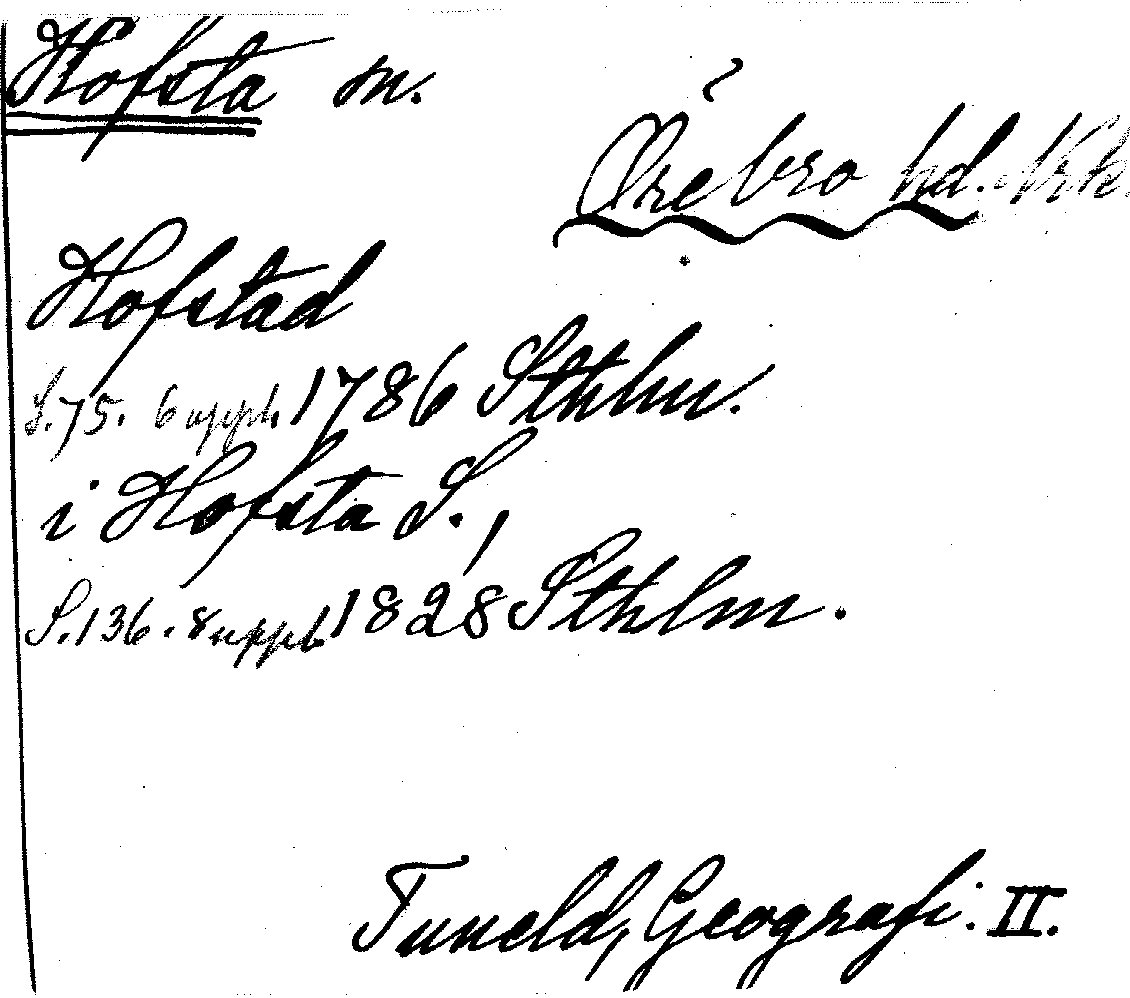 Hofsta m.
Örebro hd. Nrk.
Hofstad
S. 75. 6 uppl. 1786 Sthlm.
i Hofsta S.,
S. 136. 8 uppl. 1828 Sthlm.
Tuneld, Geografi. II.